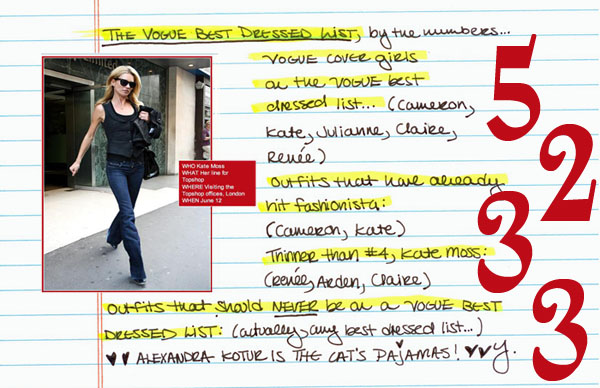 THE VOGUE BEST DRESSED LIST, by the numbers...
VOGUE COVER girls
on the VOGUE best
dressed list... (Cameron,
Kate, Julianne, Claire,
Renée)
5
outfits that have already
hit fashionista:
(Cameron, Kate)
2
Thinner than #4, Kate Moss:
(Renée, Arden, Claire)
3
outfits that should NEVER be on a VOGUE BEST
DRESSED LIST: (actually, any best dressed list...)
3
♥♥ ALEXANDRA KOTUR IS THE CAT'S PAJAMAS! ♥♥y.
WHO Kate Moss
WHAT Her line for
Topshop
WHERE Visiting the
Topshop offices, London
WHEN June 12